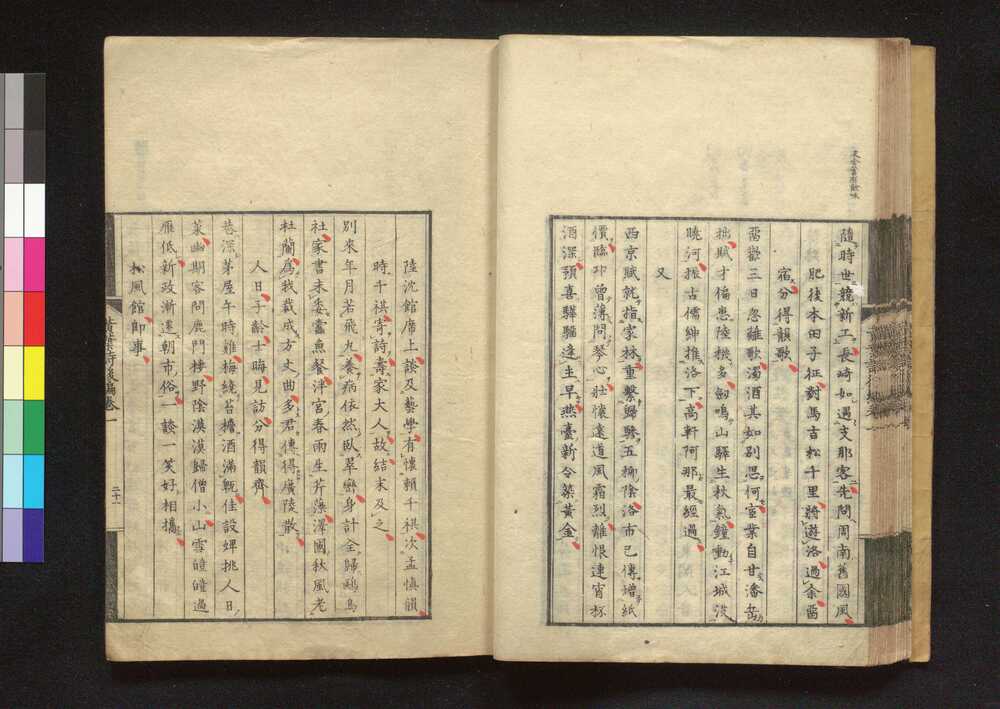 隨時世競新工長崎如遇支那客先問周南舊國風
肥後本田子征對馬吉松千里將遊洛過余畱
宿分得韻歌
畱歡三日忽離歌濁酒其如別思何室業自甘潘岳
拙賦才偏患陸機多劔鳴山驛生秋氣鐘動江城沒
曉河振古儒紳推洛下高軒阿那最經過
又
西京賦就指家林重繫歸驂五柳陰洛市已傳增紙
價臨邛曾薄問琴心壯懷遠道風霜烈離恨連宵杯
酒深預喜驊騮逢主早燕臺新令築黃金
陸沈館席上談及藝學有懷賴千祺次孟慎韻
時千祺寄詩壽家大人故結末及之
別來年月若飛丸養病依然臥翠巒身計全歸鷗鳥
社家書未委蠹魚餐泮宮春雨生芹藻澤國秋風老
杜蘭爲我裁成方丈曲多君傳得廣陵散
人日子齡士晦見訪分得韻齊
巷深茅屋午時雞梅繞苔檐酒滿甒佳設婢挑人日
菜幽期客問鹿門棲野陰漠漠歸僧小山雪皚皚過
雁低新政漸還朝市俗一談一笑好相攜
松風館即事
黃葉詩後編卷一
二十一